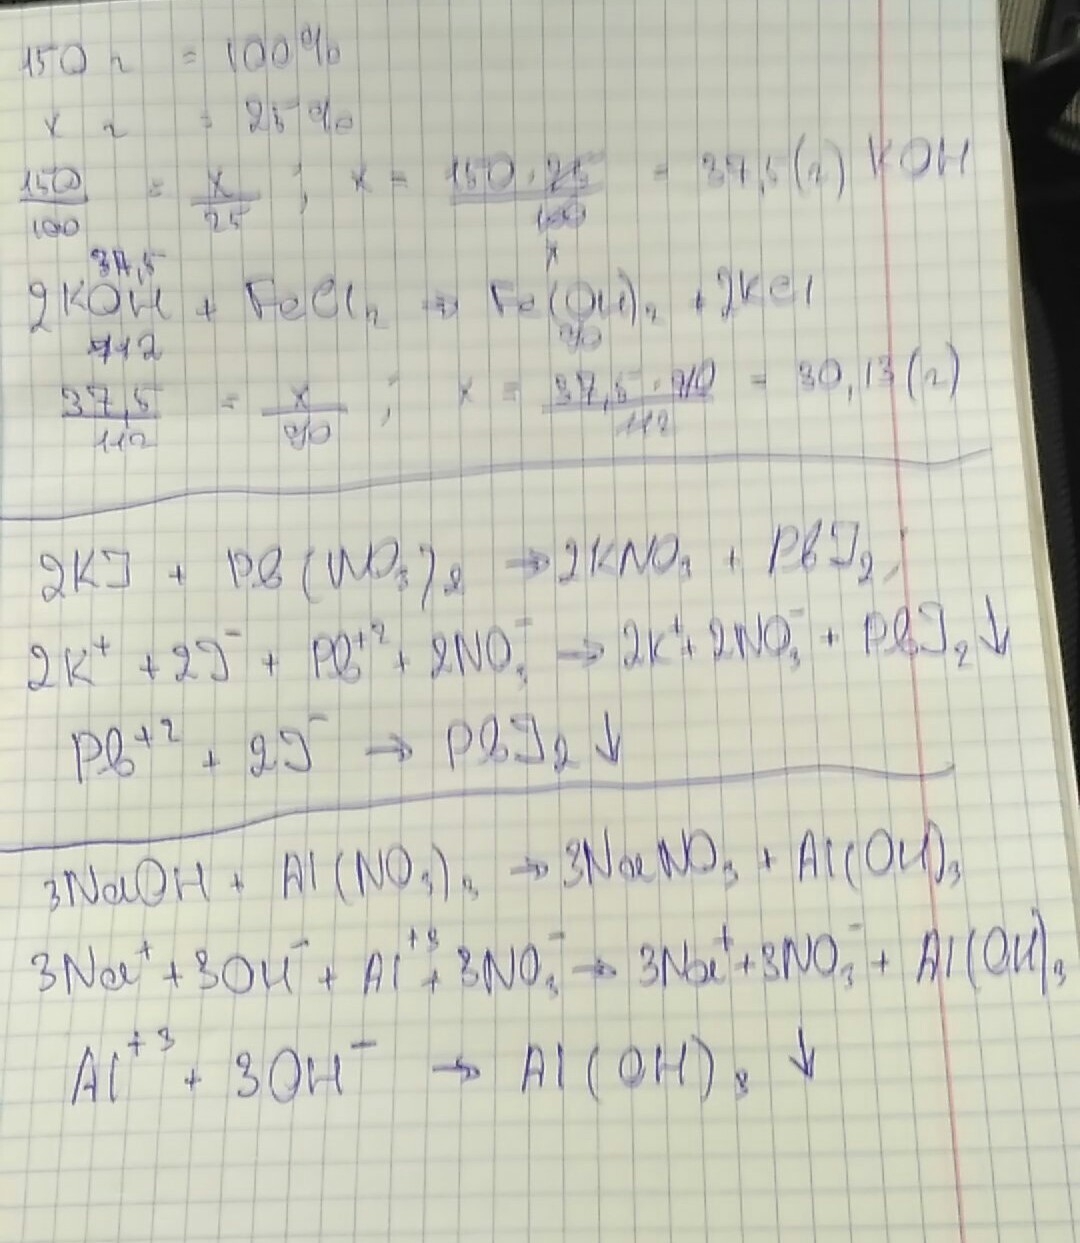 150 г = 100%
x г = 25%
150/100 = x/25 ; x = 150·25/100 = 37,5(г) KOH
37,5 x
2KOH + FeCl₂ → Fe(OH)₂ + 2KCl
112 90
37,5/112 = x/90 ; x = 37,5·90/112 = 30,13(г)
2KJ + Pb(NO₃)₂ → 2KNO₃ + PbJ₂↓
2K⁺ + 2J⁻ + Pb⁺² + 2NO₃⁻ → 2K⁺ + 2NO₃⁻ + PbJ₂↓
Pb⁺² + 2J⁻ → PbJ₂↓
3NaOH + Al(NO₃)₃ → 3NaNO₃ + Al(OH)₃
3Na⁺ + 3OH⁻ + Al⁺³ + 3NO₃⁻ → 3Na⁺ + 3NO₃⁻ + Al(OH)₃
Al⁺³ + 3OH⁻ → Al(OH)₃↓